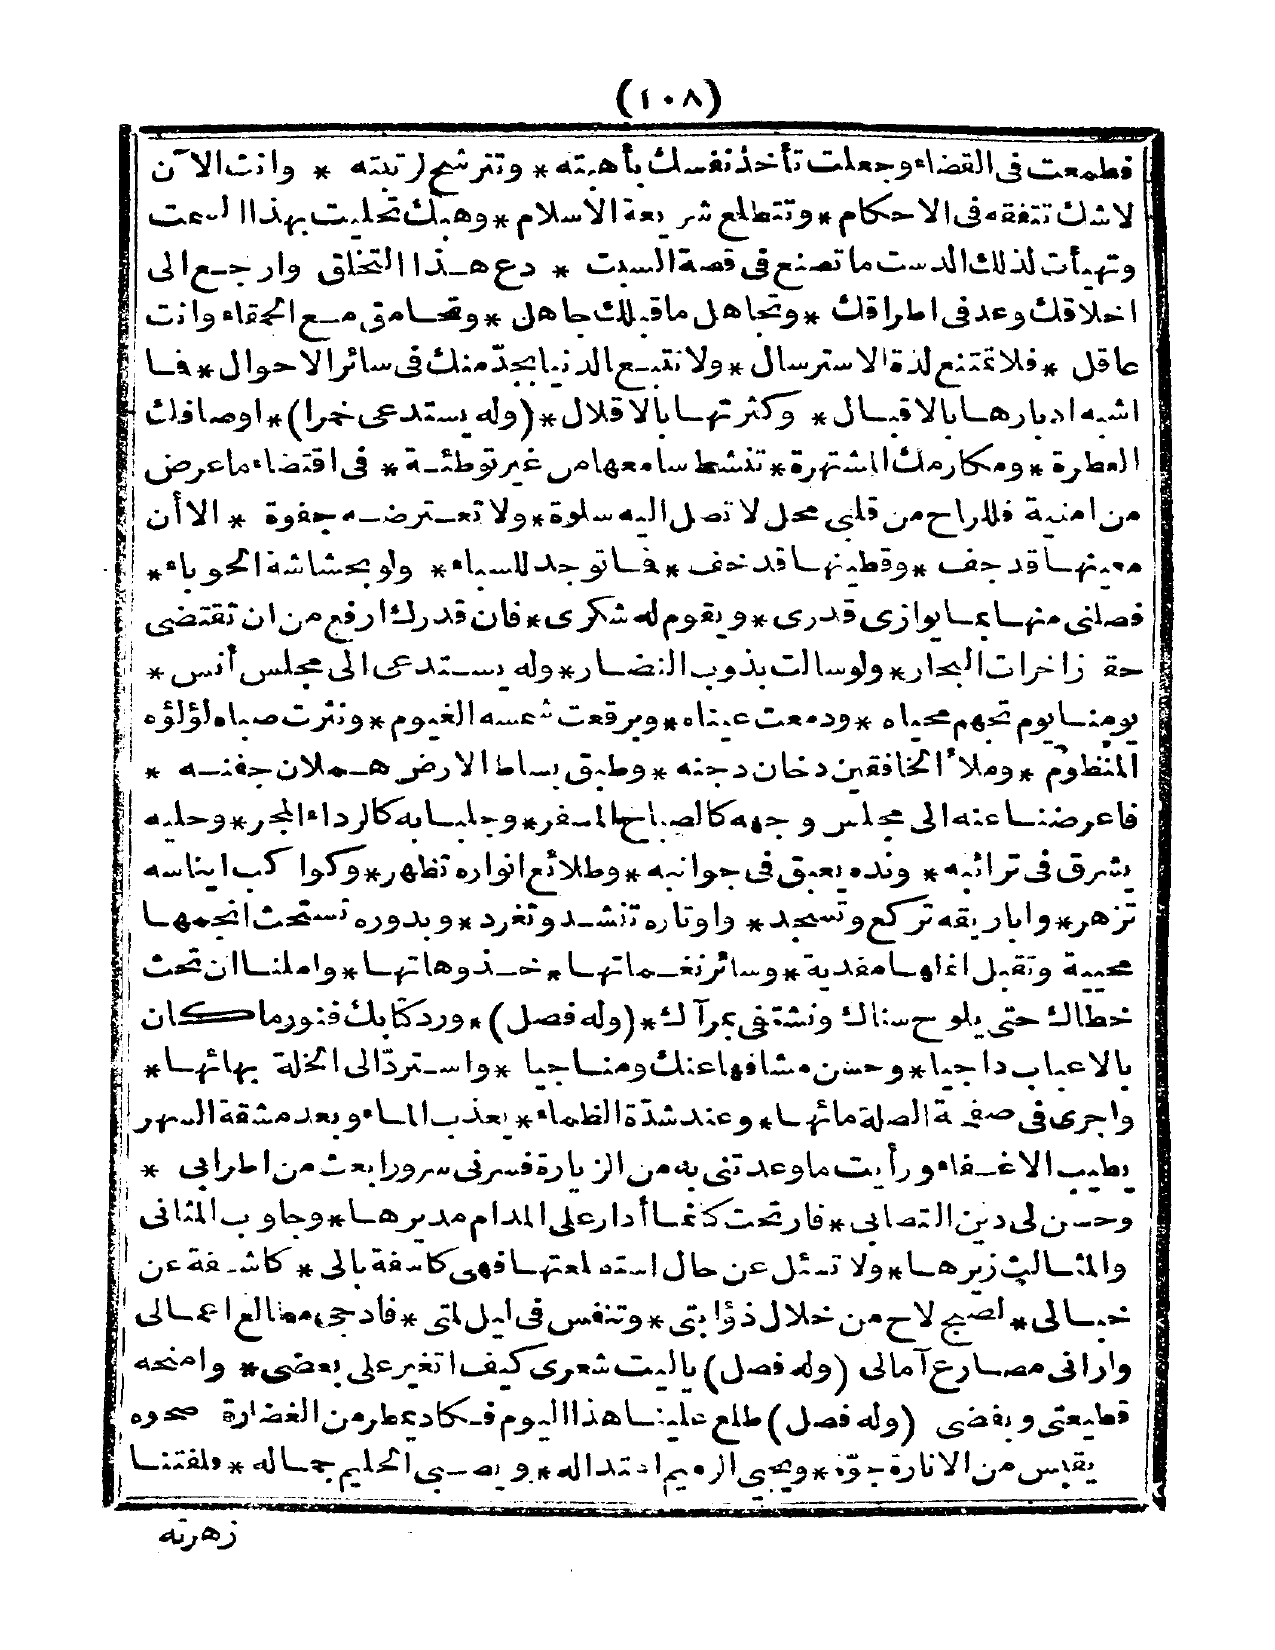 (١٠٨)
فطمعت فى القضاء وجعلت تأخذ نفسك بأهبته * وتترشح لرتبته * وانت الآن
لاشك تتفقه فى الاحكام * وتتطلع شريعة الاسلام * وهبك تحليت بهذا السمت
وتهيأت لذلك الدست ما تصنع فى قصة السبت * دع هذا التخلق وارجع الى
اخلاقك وعد فى اطراقك * وتجاهل ماقبلك جاهل * وتحامق مع الحمقاء وانت
عاقل * فلا تمتنع لذة الاسترسال * ولا تتبع الدنيا بجدّ منك فى سائر الاحوال * فما
اشبه ادبارها بالاقبال * وكثرتها بالاقلال * (وله يستدعى خمرا) * اوصافك
العطرة * ومكارمك المشتهرة * تنشط سامعها من غير توطئة * فى اقتضاء ما عرض
من امنية فللراح من قلبى محل لا تصل اليه سلوة * ولا تعترضه جفوة * الا أن
معينها قد جف * وقطينها قد خف * فما توجد للسباء * ولو بحشاشة الحوباء *
فصلنى منها بما يوازى قدرى * ويقوم له شكرى * فان قدرك ارفع من ان تقتضى
حقه زاخرات البحار * ولو سالت بذوب النضار * وله يستدعى الى مجلس أنس *
يومنا يوم تجهم محياه * ودمعت عيناه * وبرقعت شمسه الغيوم * ونثرت صباه لؤلؤه
المنظوم * وملأ الخافقين دخان دجنه * وطبق بساط الارض هملان جفنه *
فاعرضنا عنه الى مجلس وجهه كالصباح المسفر * وجلبابه كالرداء المحبر * وحليه
يشرق فى ترائبه * ونده يعبق فى جوانبه * وطلائع انواره تظهر * وكواكب ايناسه
تزهر * واباريقه تركع وتسجد * واوتاره تنشد وتغرد * وبدوره تستحث انجمها
محيية وتقبل اناملها مفدية * وسائر نغماتها * خذوهاتها * واملنا ان تحث
خطاك حتى يلوح سناك ونشتفى بمرآك * (وله فصل) * ورد كتابك فنور ما كان
بالاغباب داجيا * وحسن مشافها عنك ومناجيا * واستردّ الى الخلة بهائها *
واجرى فى صفحة الصلة مائها * وعند شدّة الظماء * يعذب الماء وبعد مشقة السهر
يطيب الاغفاء ورأيت ما وعدتنى به من الزيارة فسرنى سرورا بعث من اطرابى *
وحسن لى دين التصابى * فارتحت كأنما أدار على المدام مديرها * وجاوب المثانى
والمثالث زيرها * ولا تسئل عن حال استطلعتها فهى كاسفة بالى * كاشفة عن
خبالى * لصبح لاح من خلال ذؤابتى * وتنفس فى ليل لمتى * فادجى مطالع اعمالى
وارانى مصارع آمالى (وله فصل) ياليت شعرى كيف اتغير على بعضى * وامنحه
قطيعتى وبغضى (وله فصل) طلع علينا هذا اليوم فكاد يمطر من الغضارة صحوه
يقبس من الانارة جوّه * ويحيى الرميم اعتداله * ويصبى الحليم جماله * فلفتنا
زهرته